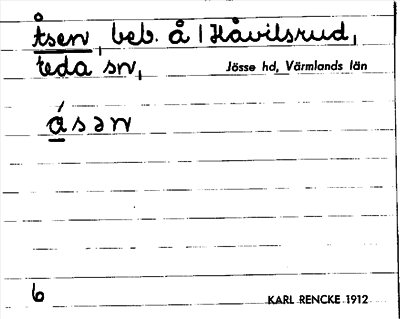 Åsen, beb. å / Håvilsrud,
Eda sn, Jösse hd, Värmlands län
ásən
6 KARL RENCKE 1912